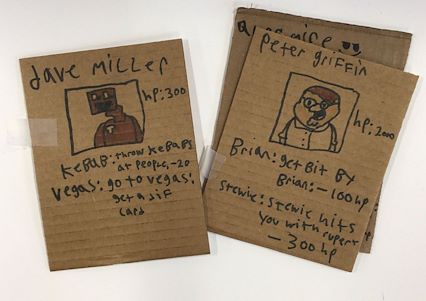 Dave Miller
hp:300
KeBaB: throw KeBaBs
at people, -20
Vegas: go to vegas:
get a
card
Peter griffin
hp:2000
Brian: get Bit By
Brian: -100hp
Stewie: Stewie hits
You with rupert
- 300hp